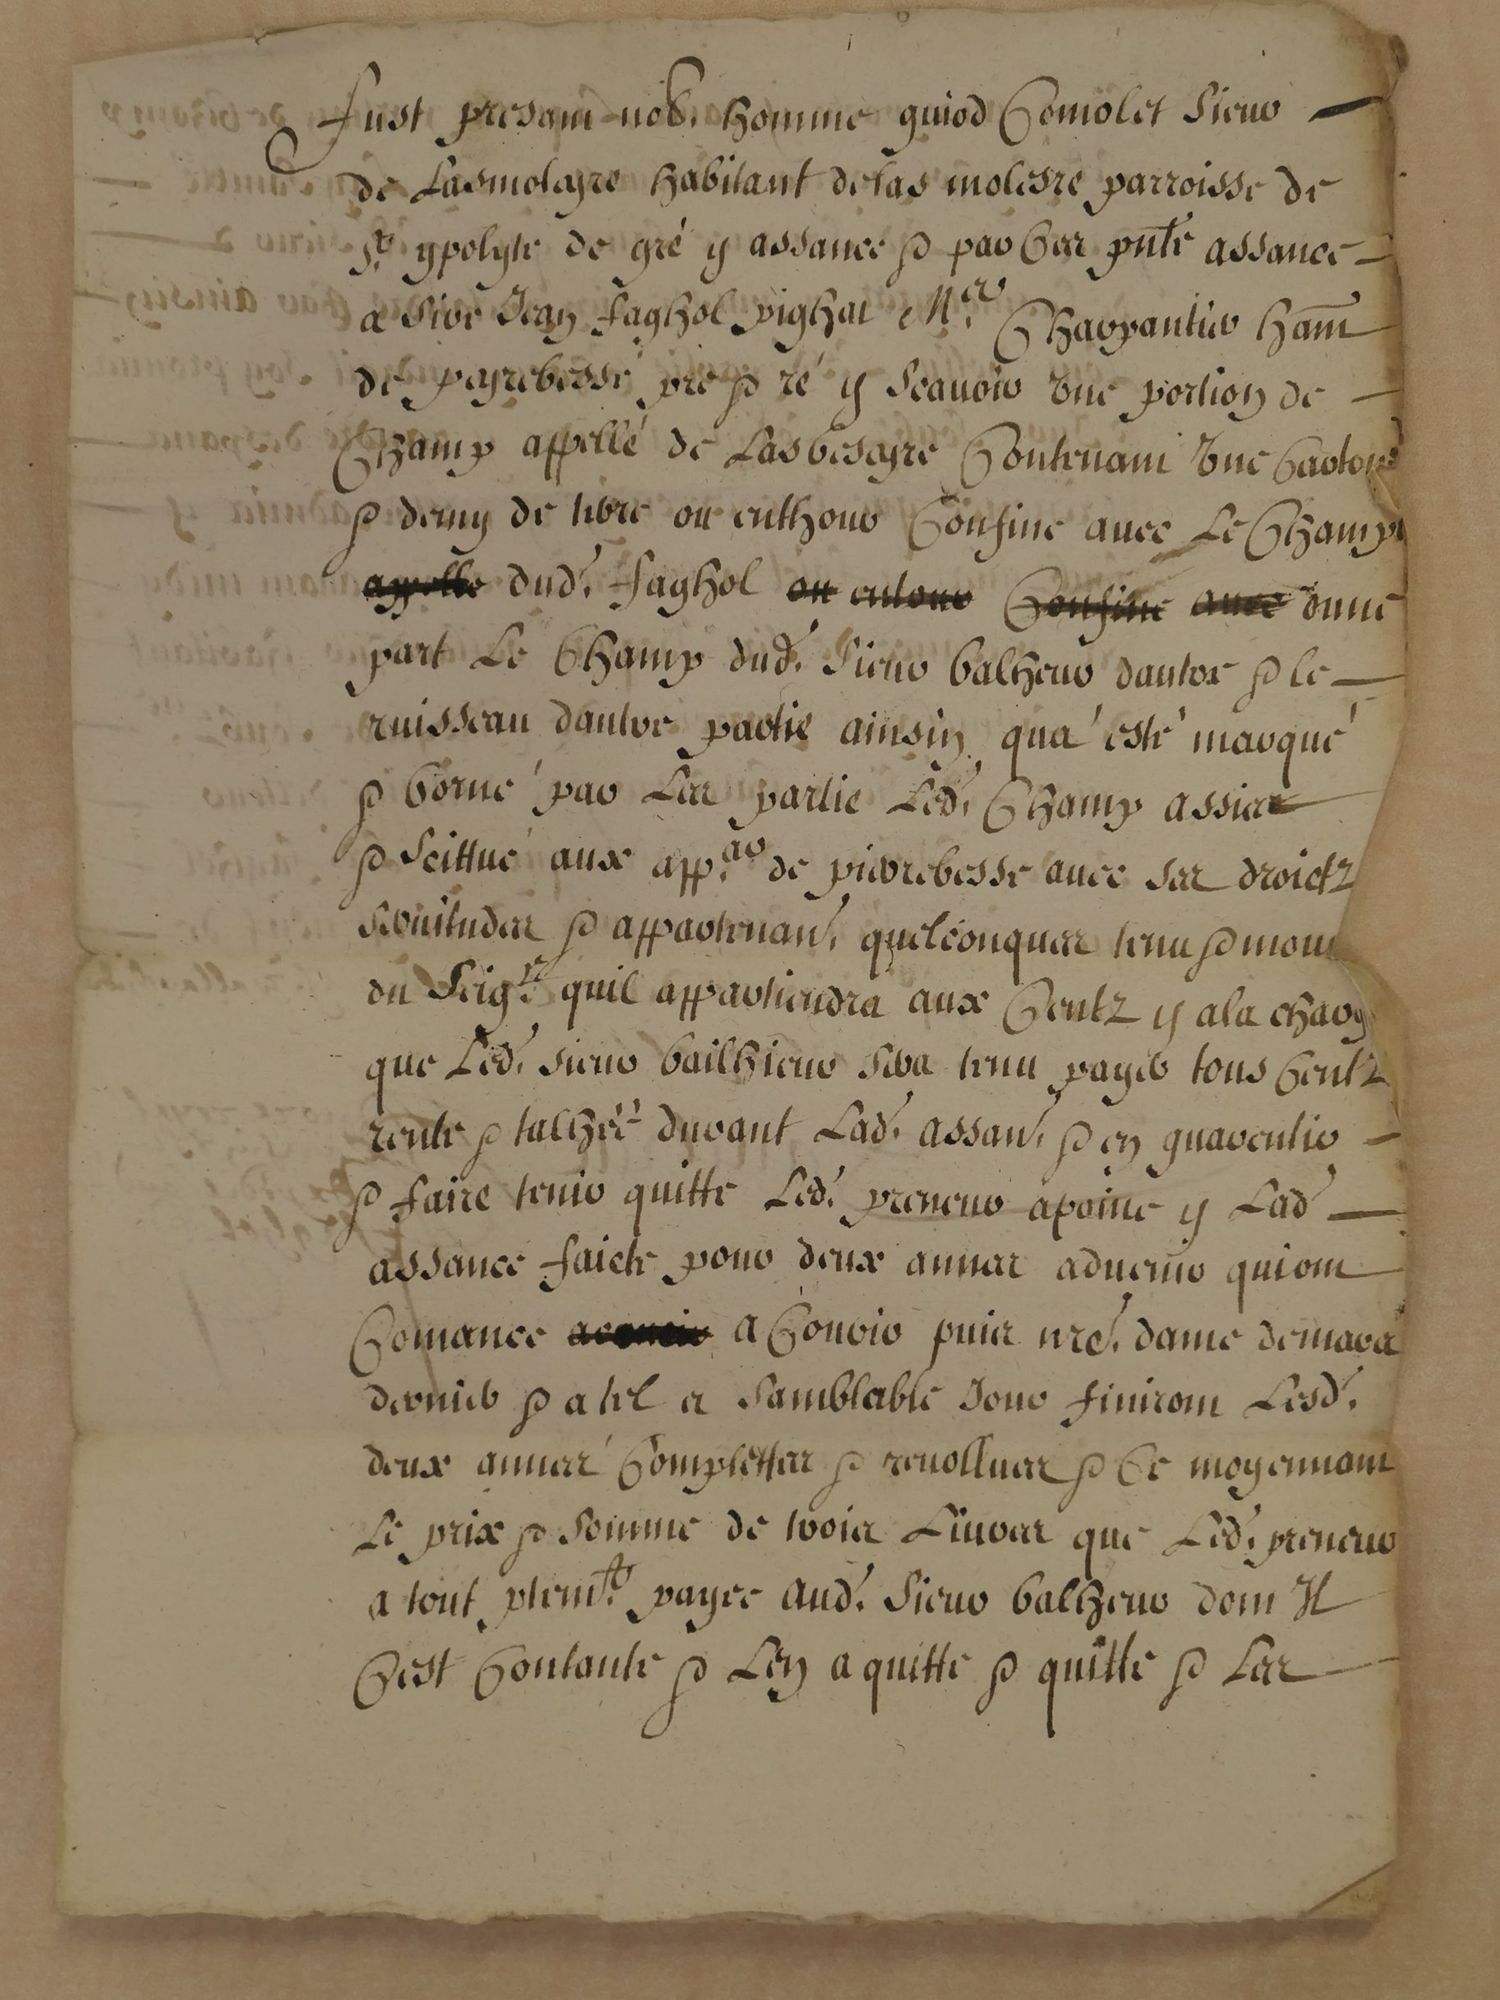 fust presant nob. homme guiod Comolet Sieur
de Lasmoleyre habitant delas molesre parroisse de
St ypolyte de gré y assance & par ces pnte assance
a Sire Jean faghol pighat Mer Charpantier ham
de peyrebesse pre & ré y scauoir une portion de
Champ appellé de Lasbeseyre Contenant une Carton
& demy de tere ou enthour Confine auec Le Champ
appelle dud. faghol ou entour Confine auec dune
part Le Champ dud. Sieur balheur dautre & le
ruisseau dautre partie ainsin qua esté marqué
& borné par Les partie Led. Champ assies
& Scittué aux app.ao de pierebesse auec ses droictz
seruitudes & appartenan. quelconques tenu & mou
du Seigr. quil appartiendra aux Centz y ala charg
que Led. sieur bailhieur sera tenu payer tous Centz
rente & talhéé durant Lad. assan. & en guarentir
& faire tenir quitte Led. preneur apoine y Lad
assance faicte pour deux annes aduenir quiont
Comance a Courir puis nre. dame demars
dernier & a tel et samblable Jour finiront Lesd.
deux annes Complettes & reuollues & Ce moyennant
Le prix & somme de trois Liures que Led. preneur
a tout ptemt. payee aud. Sieur balheur dont Il
Cest Contante & Len a quitte & quitte & Les